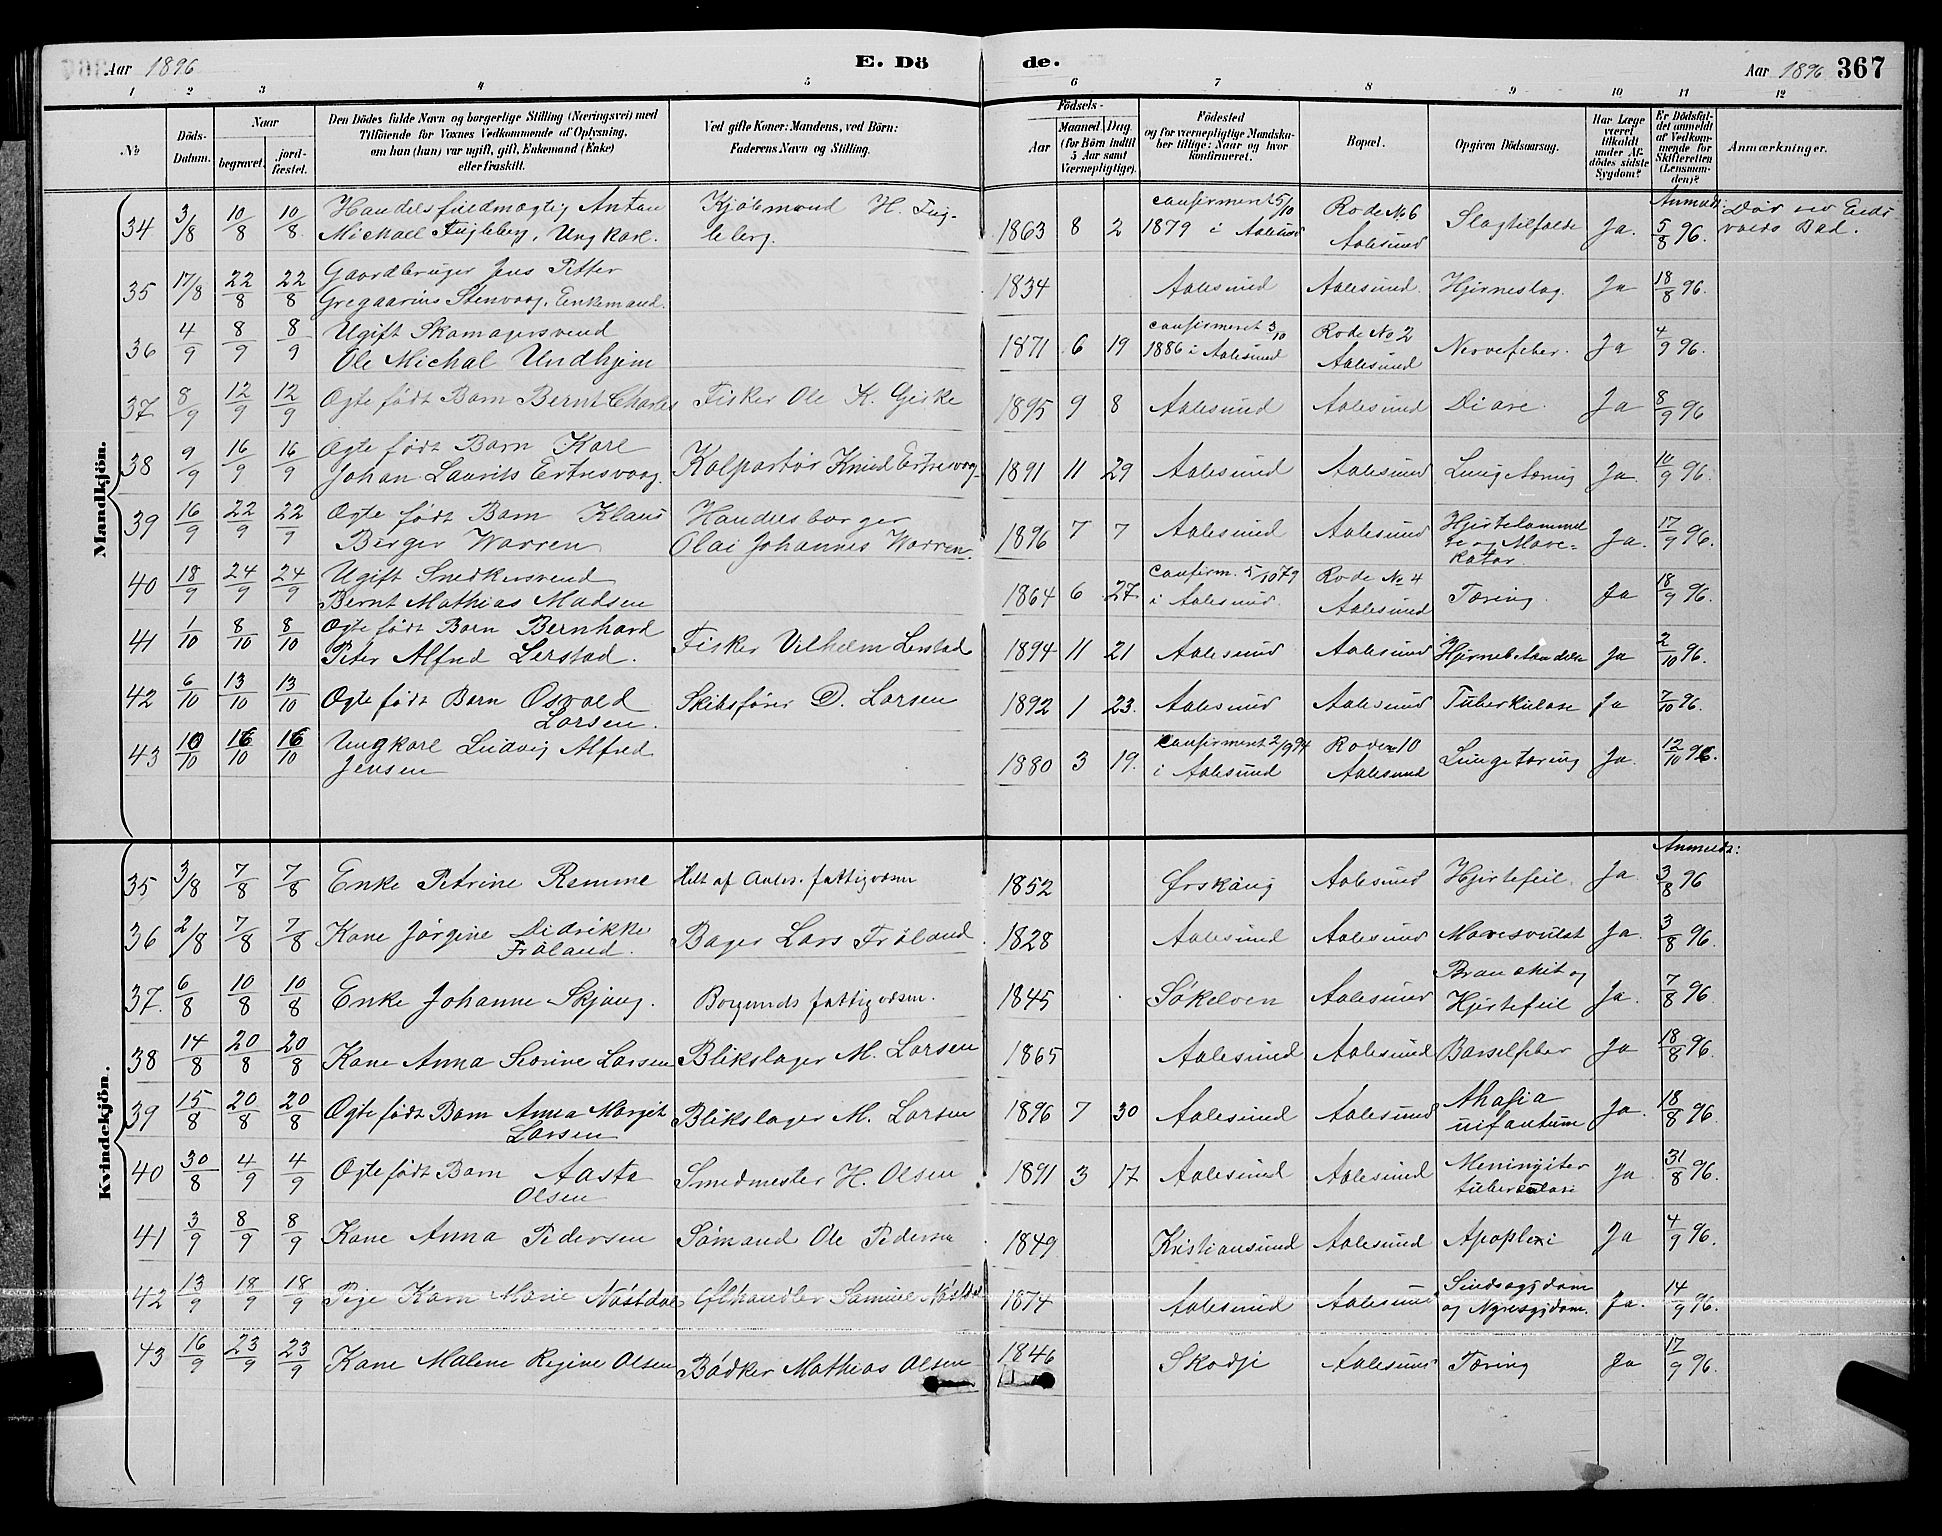 Aar 1896 E. Dö de. Aar 1896 367
1 2 3 4 5 6 7 8 9 10 11 12
No
Döds-Datum.
Naar
begravet.
jord-fæstet.
Den Dödes fulde Navn og borgerlige Stilling (Næringsvei) med
Tilföiende for Voxnes Vedkommende af Oplysning,
om han (hun) var ugift, gift, Enkemand (Enke)
eller fraskilt.
Ved gifte Koner: Mandens, ved Börn:
Faderens Navn og Stilling.
Födsels-
Aar
Maaned Dag
(for Börn indtil
5 Aar samt
Værnepligtige).
Födested
og for værnepligtige Mandska-
ber tillige: Naar og hvor
konfirmeret.
Bopæl.
Opgiven Dödsaarsag.
Har Læge
været
tilkaldt
under Af-
dödes sidste
Sygdom?
Er Dödsfal-
det anmeldt
af Vedkom-
mende for
Skifteretten
(Lensman-
den)?
Anmærkninger.
Mandkjön.
34 3/8 10/8 10/8 Handelsfuldmægtig Anton Kjöbmand H. Fug- 1863 8 2 confirmert 5/10 Rode No 6 Slagtilfælde Ja. Anmeldt: 5/8 96.
Michael Fugleberg, Ungkarl. leberg. 1879 i Aalesund Aalesund
35 17/8 22/8 22/8 Gaardbruger Jens Petter 1834 Aalesund Aalesund. Hjerneslag. Ja 18/8 96.
Gregaarius Stenvaag, Enkemand.
36 4/9 8/9 8/9 Ugift Skomagersvend 1871 6 19 confirmeret 3/10 Rode No 2 Nervefeber. Ja 4/9 96.
Ole Michal Undhjem 1886 i Aalesund Aalesund
37 8/9 12/9 12/9 Ægte født Barn Bernt Charles Fisker Ole K. Giske 1895 9 8 Aalesund Aalesund Diare. Ja 8/9 96
38 9/9 16/9 16/9 Ægte født Barn Karl 1891 11 29 Aalesund Aalesund Lungetæring Ja. 10/9 96.
Johan Laurits Ertnesvaag. Kolportör Knud Ertnesvaag.
39 16/9 22/9 22/9 Ægte født Barn Klaus Handelsborger 1896 7 7 Aalesund Aalesund Ja. 17/9 96.
Birger Warren Olai Johannes Warren.
40 18/9 24/9 24/9 Ugift Snedkersvend 1864 6 27. Confirm. 5/10 79 Rode No 4 Tæring. Ja 18/9 96.
Bernt Mathias Madsen i Aalesund. Aalesund
41 1/10 8/10 8/10 Ægte født Barn Bernhard 1894 11 21 Aalesund Aalesund Ja 2/10 96.
Peter Alfred Lerstad. Fisker Vilhelm Lerstad
42 6/10 13/10 13/10 Ægte født Barn Osvald Skibsfører D. Larsen 1892 1 23. Aalesund Aalesund Tuberkulose Ja 7/10 96.
Larsen.
43 10/10 16/10 16/10 Ungkarl Ludvig Alfred 1880 3 19. Confirmert 2/9 94 Rode 10 Lungetæring Ja. 12/10 96.
Jensen i Aalesund Aalesund
Kvindekjön.
35 3/8 7/8 7/8 Enke Petrine Remme Hilt af Aales. fattigvæsen 1852 Ørskoug Aalesund Hjertefeil. Ja Anmeldt: 3/8 96
36 2/8 7/8 7/8 Kone Jørgine Didrikke Bager Lars Frøland. 1828 Aalesund Aalesund Mavesvulst Ja. 3/8 96.
Frøland.
37. 6/8 10/8 10/8 Enke Johanne Skjong. Borgunds fattigvæsen. 1845 Søkelven Aalesund Bronchit og Ja. 7/8 96.
Hjertefeil
38 14/8 20/8 20/8 Kone Anna Severine Larsen Blikslager M. Larsen 1865 Aalesund Aalesund Barselfeber Ja 18/8 96.
39 15/8 20/8 20/8 Ægte født Barn Anna Margit Blikslager M. Larsen 1896 7 30 Aalesund Aalesund Ja. 18/8 96.
Larsen infantum
40 30/8 4/9 4/9 Ægte født Barn Aasta Smedmester H. Olsen 1891 3 17 Aalesund Aalesund Meningiter Ja 31/8 96.
Olsen tuberculosi
41 3/9 8/9 8/9 Kone Anna Pedersen Sømand Ole Pedersen 1849 Kristiansund Aalesund Apoplexi Ja 4/9 96.
42 13/9 18/9 18/9 Pige Karn Marie Nøstdal Ølhandler Samuel Nøstdal 1874 Aalesund Aalesund Sindssygdom Ja. 14/9 96.
og Nyresygdom.
43 16/9 23/9 23/9 Kone Malene Regine Olsen Bødker Mathias Olsen 1846 Skodje Aalesund Tæring Ja 17/9 96.